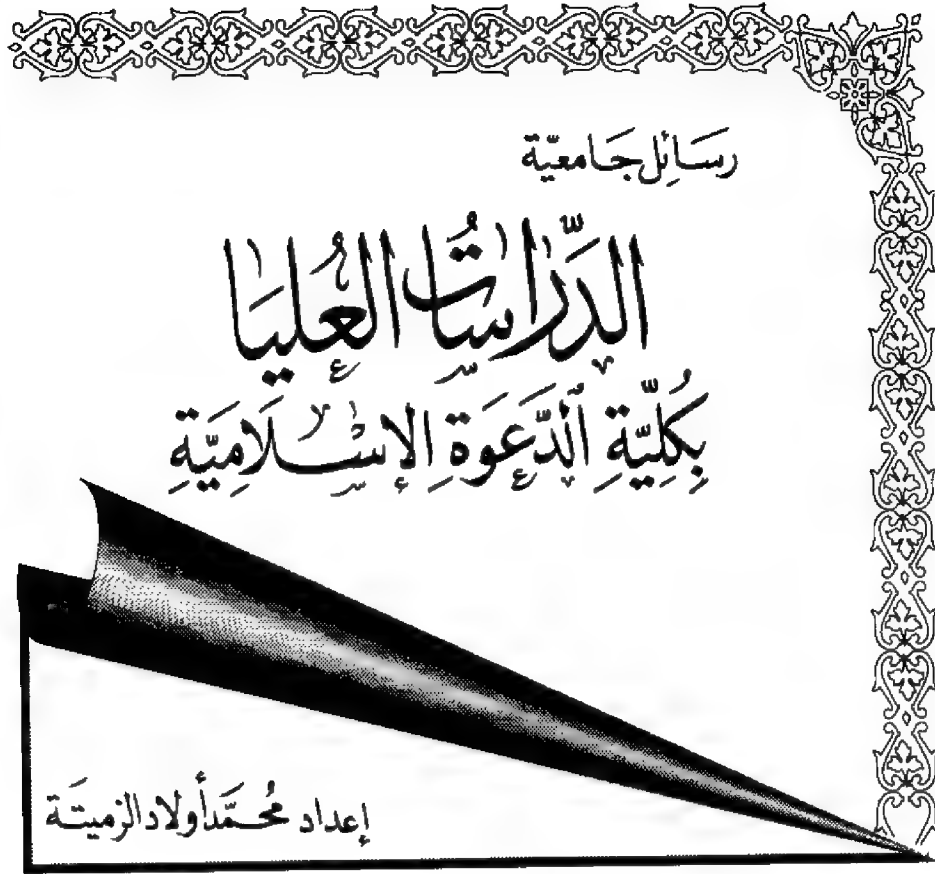 رسَائِل جَامعيّة
الدِّرَاسَاتُ العُليَا
بِكُلِيَّةِ الدَّعوَةِ الإِسْلَامِيَّةِ
إعداد محُـمَّد أولاد الزميتَـة